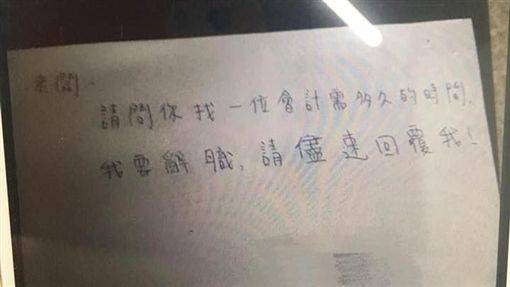 老闆.
請問你找一位會計需多久的時間.
我要辭職, 請儘速回覆我!